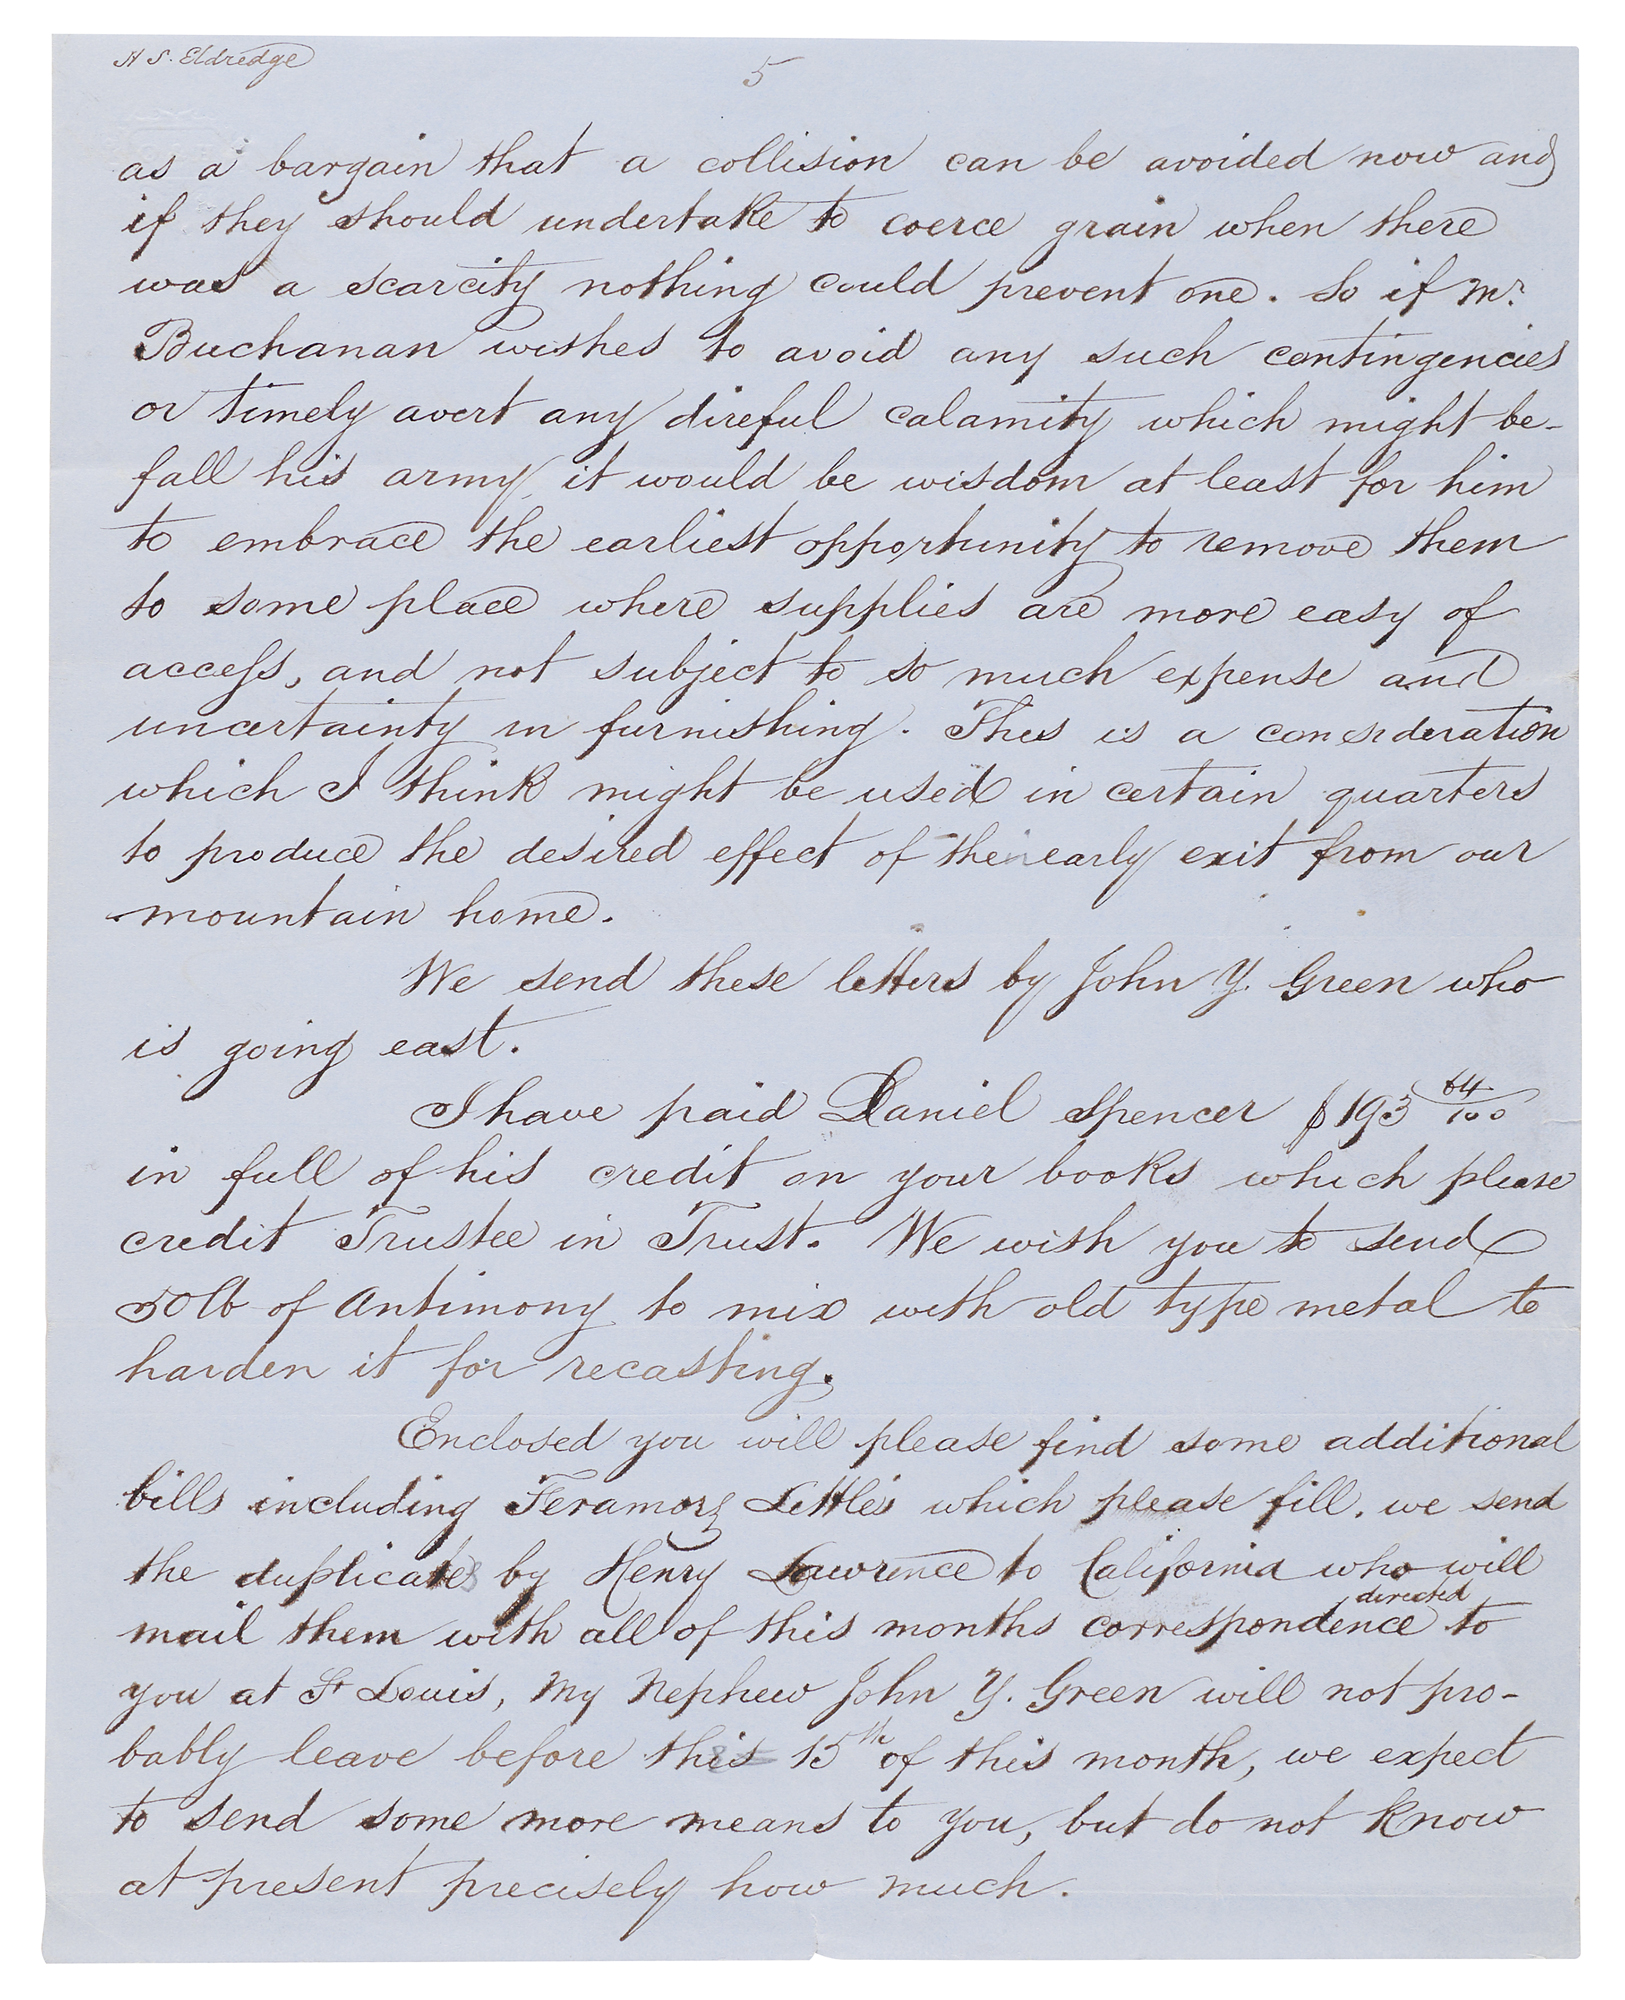 H S. Eldredge
5
as a bargain that a collision can be avoided now and
if they should undertake to coerce grain when there
was a scarcity nothing could prevent one. So if Mr.
Buchanan wishes to avoid any such contingencies
or timely avert any direful calamity which might be-
fall his army, it would be wisdom at least for him
to embrace the earliest opportunity to remove them
to some place where supplies are more easy of
access, and not subject to so much expense and
uncertainty in furnishing. This is a consideration
which I think might be used in certain quarters
to produce the desired effect of the early exit from our
mountain home.
We send these letters by John Y. Green who
is going east.
I have paid Daniel Spencer $193 64/100
in full of his credit on your books which please
credit Trustee in Trust. We wish you to send
50 lb of Antimony to mix with old type metal to
harden it for recasting.
Enclosed you will please find some additional
bills including Feramorz Little's which please fill. we send
the duplicates by Henry Lawrence to California who will
directed
mail them with all of this months correspondence to
you at St Louis, My Nephew John Y. Green will not pro-
bably leave before this 15th of this month, we expect
to send some more means to you, but do not know
at present precisely how much.